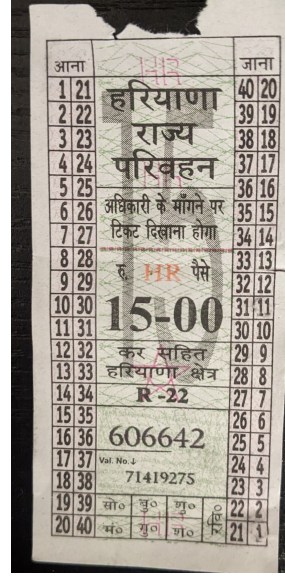 आना
जाना
1 21
2 22
3 23
4 24
5 25
6 26
7 27
8 28
9 29
10 30
11 31
12 32
13 33
14 34
15 35
16 36
17 37
18 38
19 39
20 40
हरियाणा
राज्य
परिवहन
अधिकारी के माँगने पर
टिकट दिखाना होगा
रु. HR पैसे
15-00
कर सहित
हरियाणा क्षेत्र
R-22
606642
Val. No.↓
71419275
सो० बु० शु०
मं० गु० श० रवि०
40 20
39 19
38 18
37 17
36 16
35 15
34 14
33 13
32 12
31 11
30 10
29 9
28 8
27 7
26 6
25 5
24 4
23 3
22 2
21 1